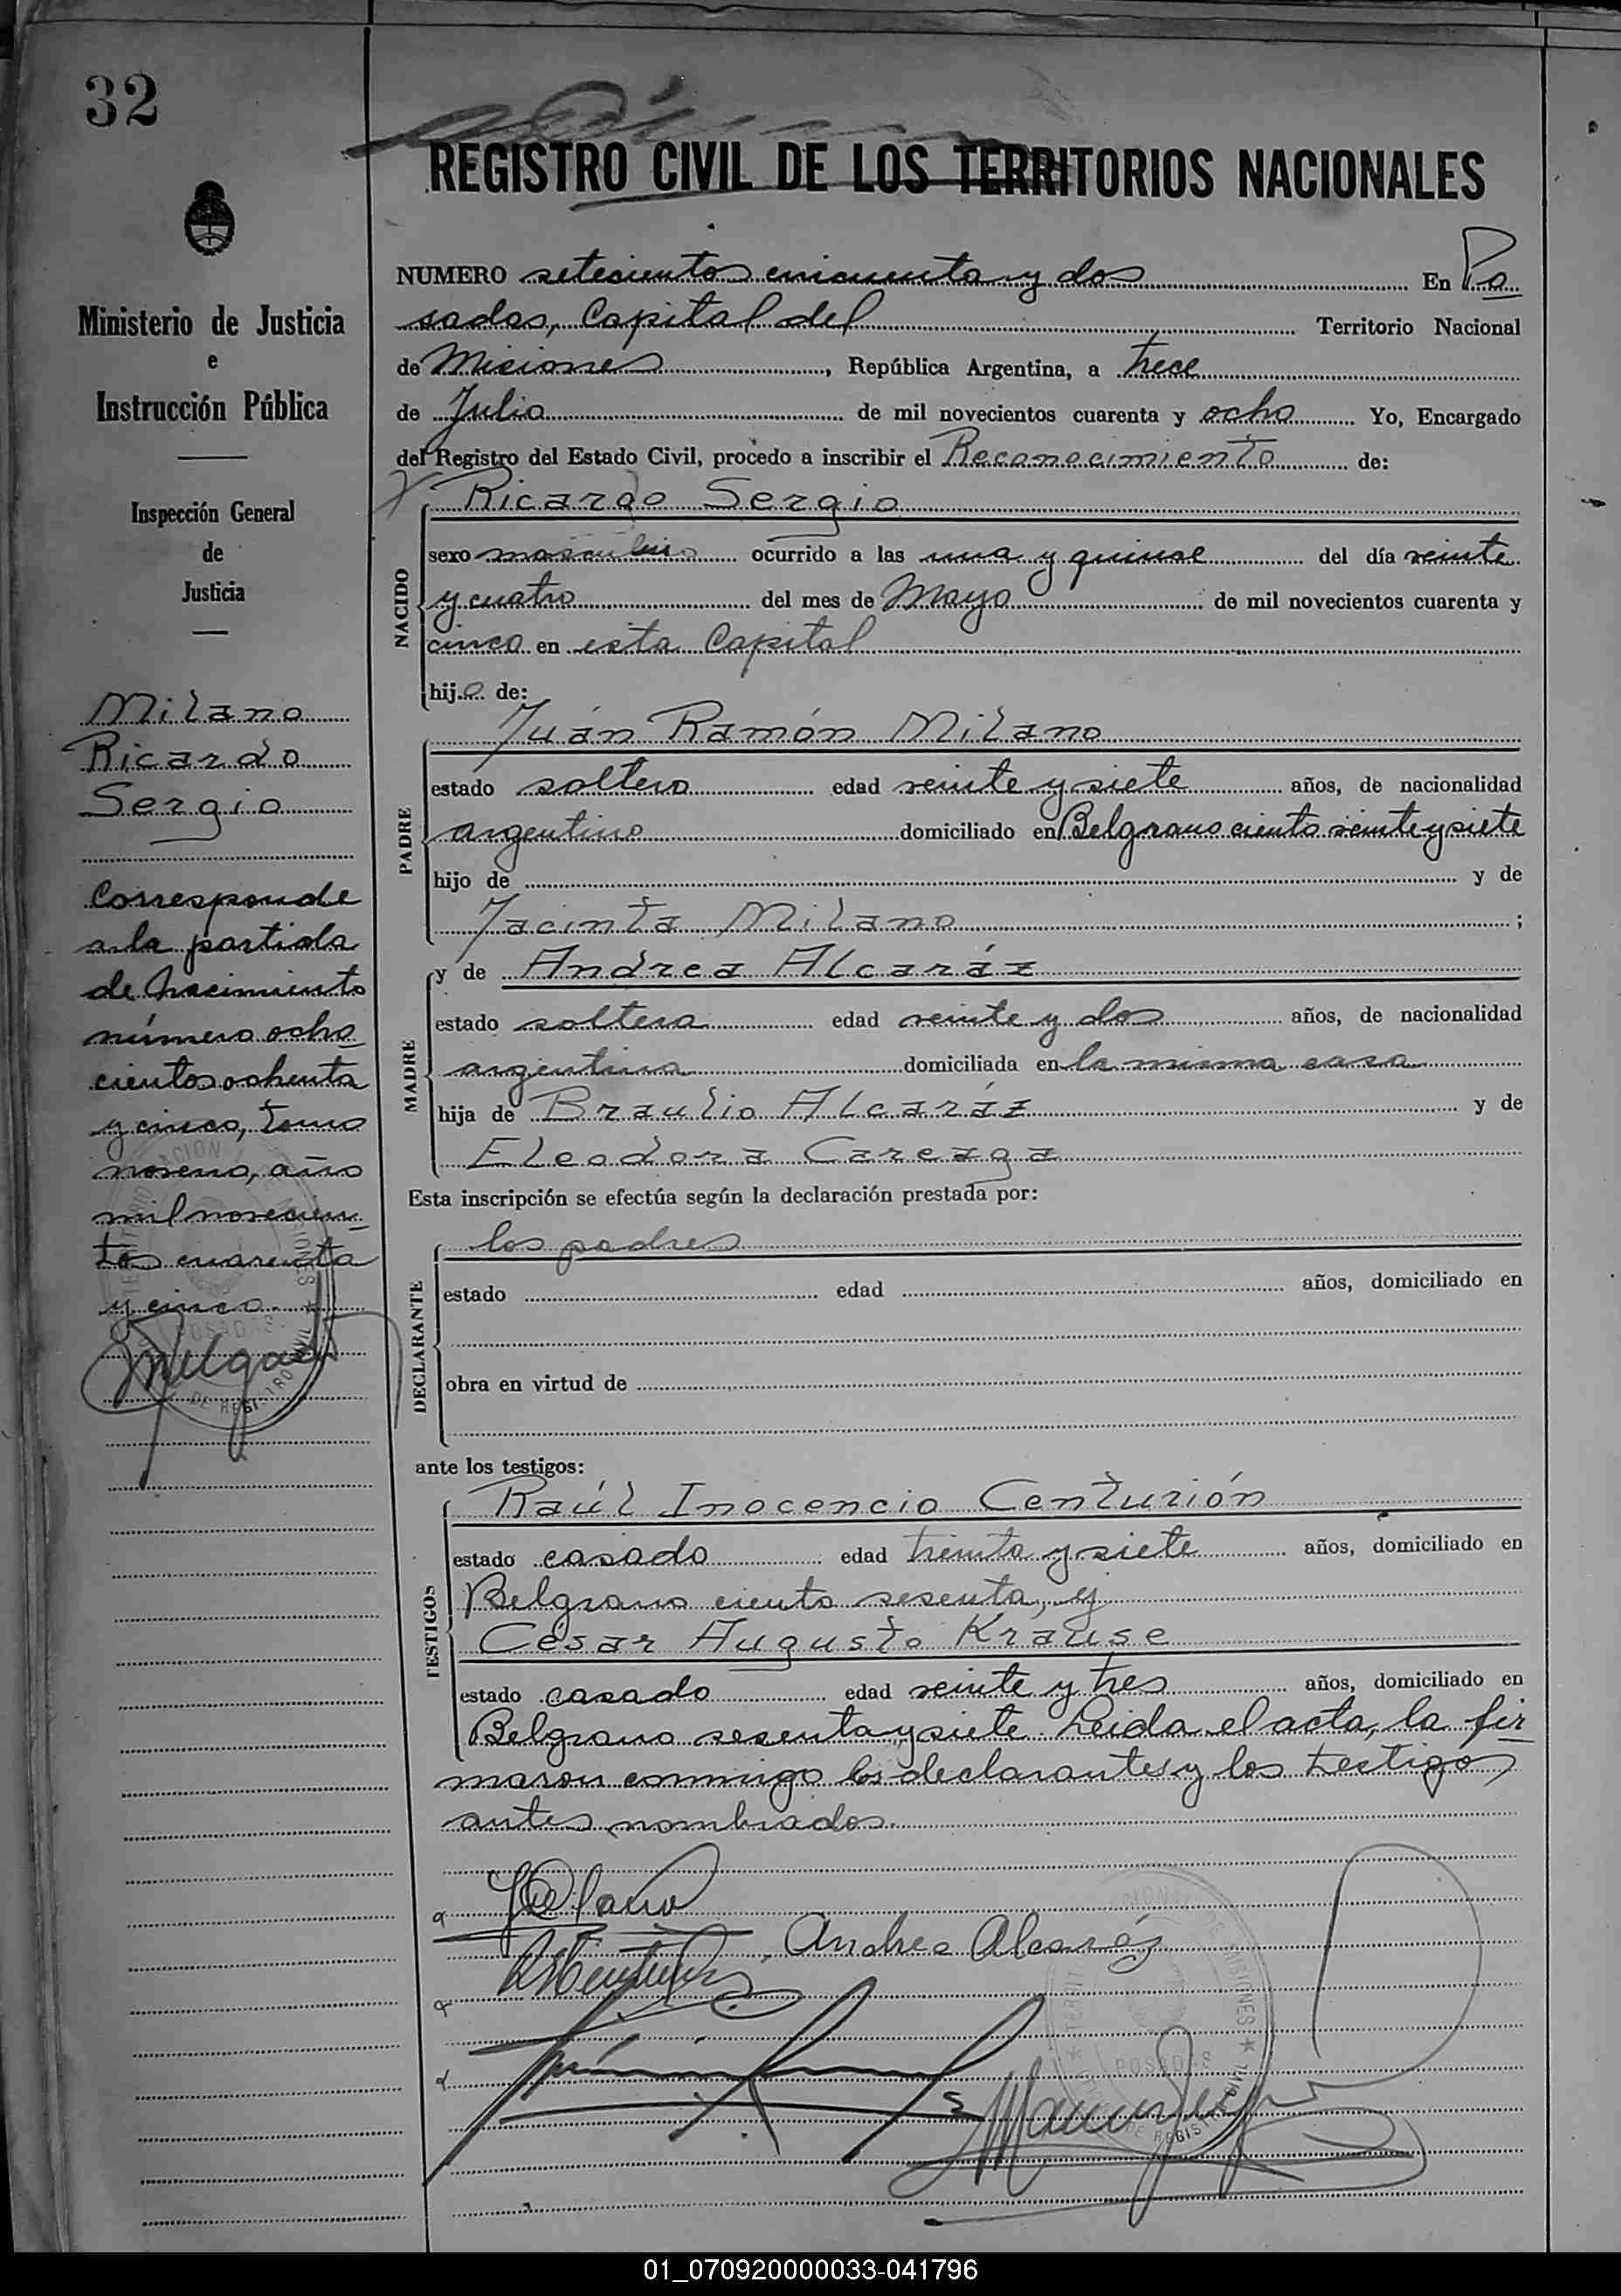 32
REGISTRO CIVIL DE LOS TERRITORIOS NACIONALES
Ministerio de Justicia
e
Instrucción Pública
Inspección General
de
Justicia
Milano
Ricardo
Sergio
Corresponde
a la partida
de nacimiento
número ocho
cientos ochenta
y cinco, tomo
noveno, año
mil novecien-
tos cuarenta
y cinco.
NUMERO setecientos cincuenta y dos En Po
sadas, Capital del Territorio Nacional
de Misiones, República Argentina, a trece
de Julio de mil novecientos cuarenta y ocho Yo, Encargado
del Registro del Estado Civil, procedo a inscribir el Reconocimiento de:
Ricardo Sergio
NACIDO
sexo masculino ocurrido a las una y quince del día veinte
y cuatro del mes de Mayo de mil novecientos cuarenta y
cinco en esta Capital
hijo de:
Juán Ramón Milano
PADRE
estado soltero edad veinte y siete años, de nacionalidad
argentino domiciliado en Belgrano ciento veinte y siete
hijo de y de
Jacinta Milano ;
y de Andrea Alcaráz
MADRE
estado soltera edad veinte y dos años, de nacionalidad
argentina domiciliada en la misma casa
hija de Braulio Alcaráz y de
Eleodora Careaga
Esta inscripción se efectúa según la declaración prestada por:
los padres
DECLARANTE
estado edad años, domiciliado en
obra en virtud de
ante los testigos:
Raúl Inocencio Centurión
TESTIGOS
estado casado edad treinta y siete años, domiciliado en
Belgrano ciento sesenta, y
Cesar Augusto Krause
estado casado edad veinte y tres años, domiciliado en
Belgrano sesenta y siete. Leida el acta, la fir
maron conmigo los declarantes y los testigos
antes nombrados.
Andrea Alcaráz
POSADAS
01_070920000033-041796